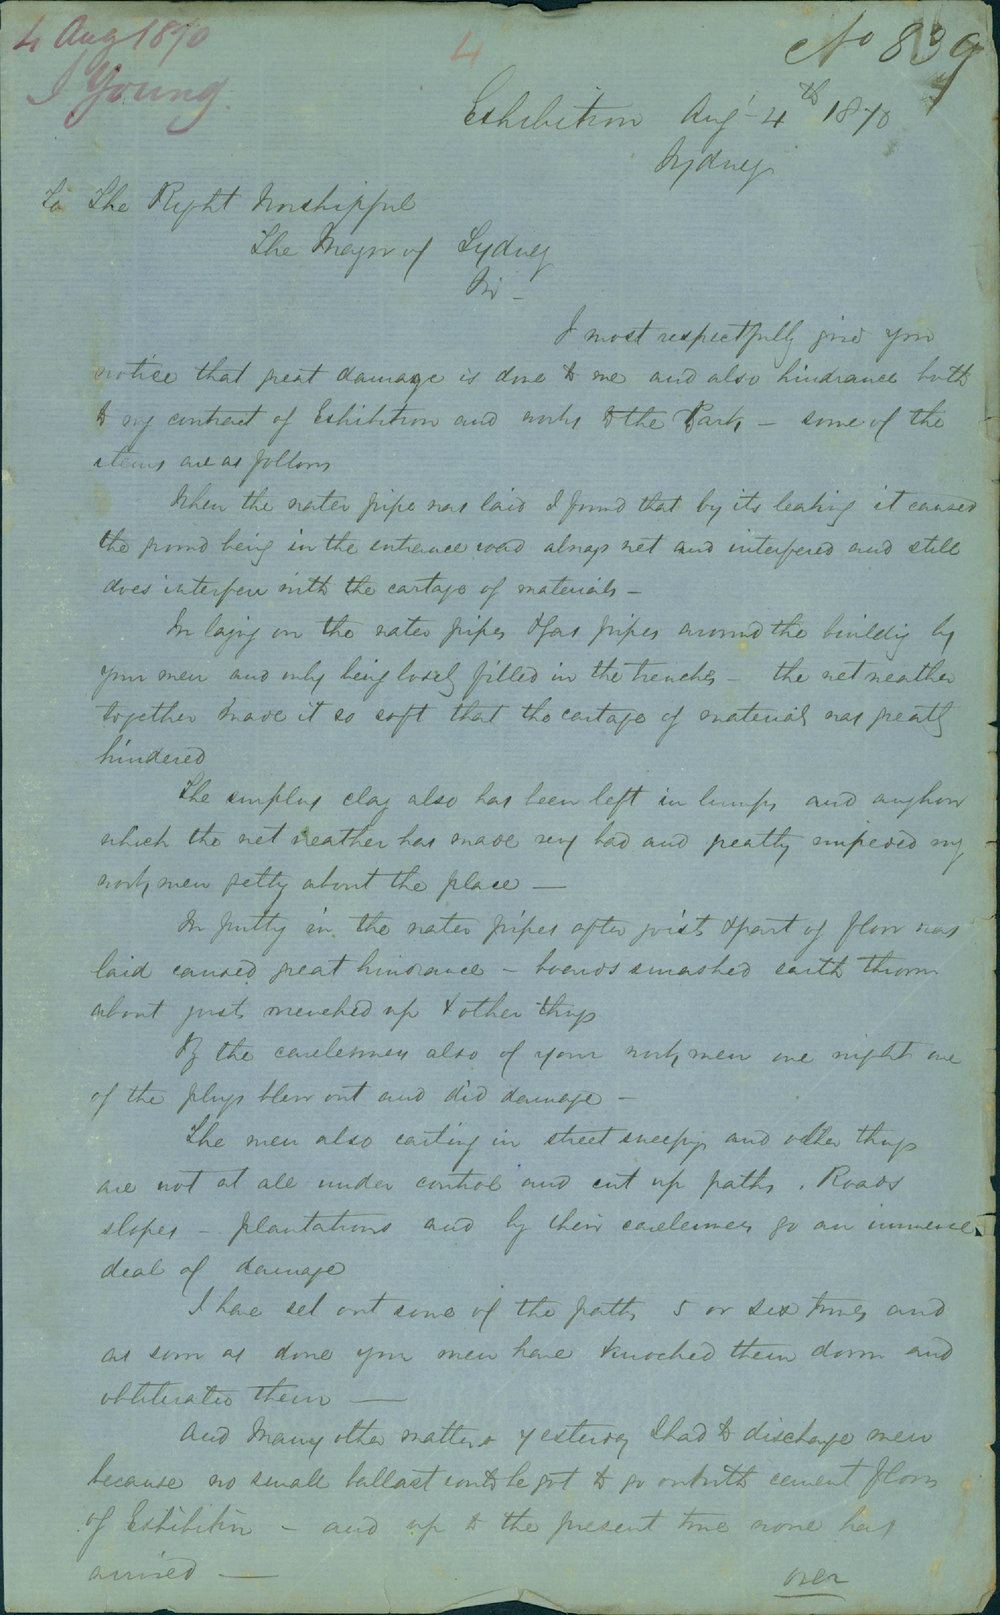 4 Aug 1870
J Young
4
No 839
Exhibition Augt 4th 1870
Sydney
To The Right Worshipful
The Mayor of Sydney
Sir –
I most respectfully give you
notice that great damage is done to me and also hindrance both
to my contract of Exhibition and works to the Park – some of the
items are as follows
When the water pipe was laid I found that by its leaking it caused
the ground being in the entrance road always wet and interfered and still
does interfere with the cartage of materials –
In laying on the water pipes & gas pipes around the building by
your men and only being loosely filled in the trenches – the wet weather
together made it so soft that the cartage of materials was greatly
hindered
The surplus clay also has been left in lumps and anyhow
which the wet weather has made very bad and greatly impeded my
workmen getting about the place –
In putting in the water pipes after joists & part of floor was
laid caused great hindrance – boards smashed earth thrown
about joists wrenched up & other things
By the carelessness also of your workmen one night one
of the plugs blew out and did damage –
The men also carting in street sweepings and other things
are not at all under control and cut up paths, Roads
slopes – plantations and by their carelessness do an immence
deal of damage
I have set out some of the paths 5 or six times and
as soon as done your men have knocked them down and
obliterated them –
And Many other matters yesterday I had to discharge men
because no small ballast could be got to go on with cement floors
of Exhibition – and up to the present time none has
arrived –
over